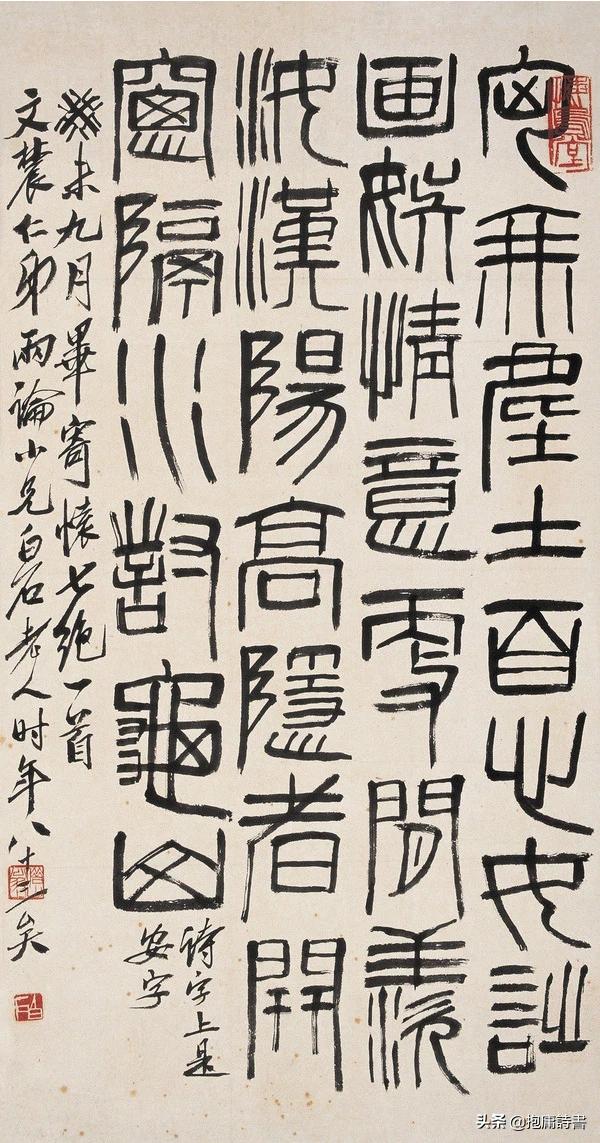 悔烏堂
匈無塵土自心安詩
画娛情意更閒羨
汝漢陽高隱者開
窗隔水對龜山
詩字上是
安字
癸未九月畢寄懷七絕一首
文農仁弟兩論小兄白石老人时年八十三矣
头条 @抱庸詩書